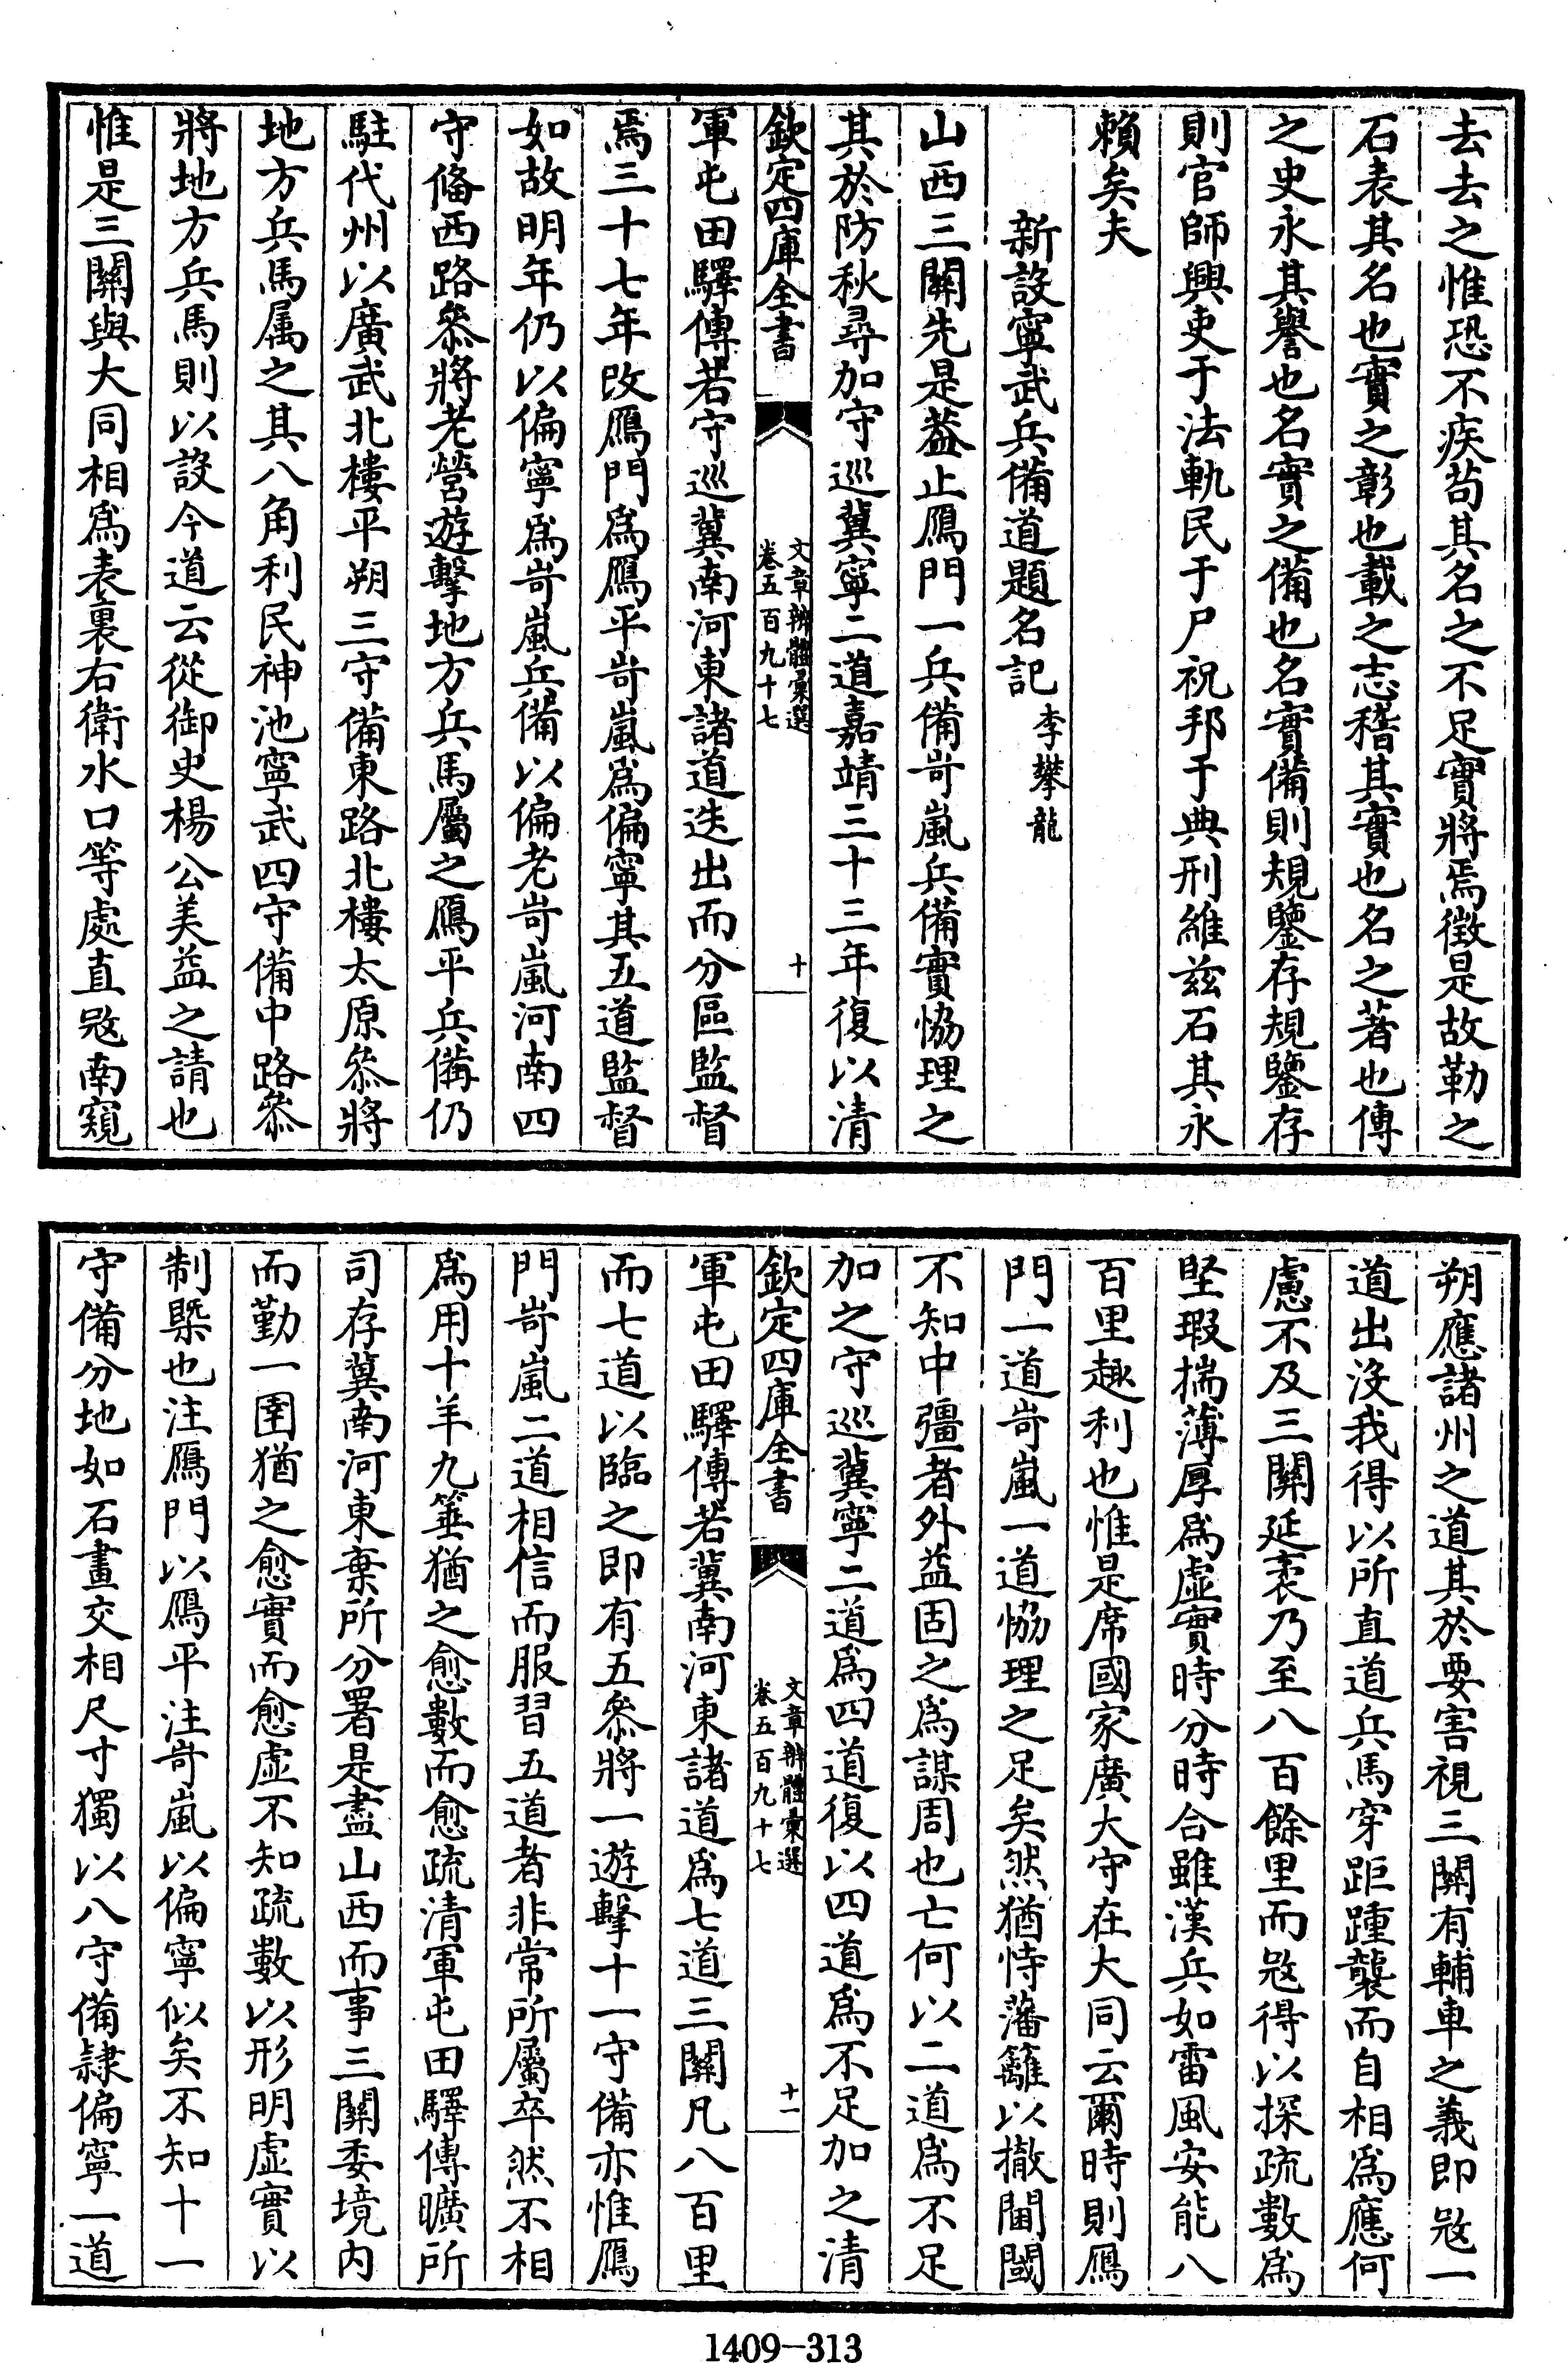 去去之惟恐不疾苟其名之不足實將焉徵是故勒之
石表其名也實之彰也載之志稽其實也名之著也傳
之史永其譽也名實之備也名實備則規鑒存規鑒存
則官師興吏于法軌民于尸祝邦于典刑維茲石其永
賴矣夫
新設寧武兵備道題名記 李攀龍
山西三關先是葢止鴈門一兵備岢嵐兵備實恊理之
其於防秋尋加守巡冀寧二道嘉靖三十三年復以清
欽定四庫全書 文章辨體彙選 卷五百九十七 十
軍屯田驛傳若守巡冀南河東諸道迭出而分區監督
焉三十七年改鴈門爲鴈平岢嵐爲偏寧其五道監督
如故明年仍以偏寧爲岢嵐兵備以偏老岢嵐河南四
守俻西路叅將老營遊擊地方兵馬屬之鴈平兵備仍
駐代州以廣武北樓平朔三守備東路北樓太原叅將
地方兵馬属之其八角利民神池寧武四守備中路叅
將地方兵馬則以設今道云從御史楊公美益之請也
惟是三關與大同相爲表裏右衛水口等處直㓂南窺
朔應諸州之道其於要害視三關有輔車之義即㓂一
道出沒我得以所直道兵馬穿距踵襲而自相爲應何
慮不及三關延袤乃至八百餘里而㓂得以探疏數爲
堅瑕揣薄厚爲虛實時分時合雖漢兵如雷風安能八
百里趣利也惟是席國家廣大守在大同云爾時則鴈
門一道岢嵐一道恊理之足矣然猶恃藩籬以撤閫閾
不知中彊者外益固之爲謀周也亡何以二道爲不足
加之守巡冀寧二道爲四道復以四道爲不足加之清
欽定四庫全書 文章辨體彙選 卷五百九十七 十一
軍屯田驛傳若冀南河東諸道爲七道三關凡八百里
而七道以臨之即有五叅將一遊擊十一守備亦惟鴈
門岢嵐二道相信而服習五道者非常所屬卒然不相
爲用十羊九箠猶之愈數而愈疏清軍屯田驛傳曠所
司存冀南河東棄所分署是盡山西而事三關委境內
而勤一圉猶之愈實而愈虛不知疏數以形明虛實以
制槩也注鴈門以鴈平注岢嵐以偏寧似矣不知十一
守備分地如石畫交相尺寸獨以八守備隷偏寧一道
1409-313